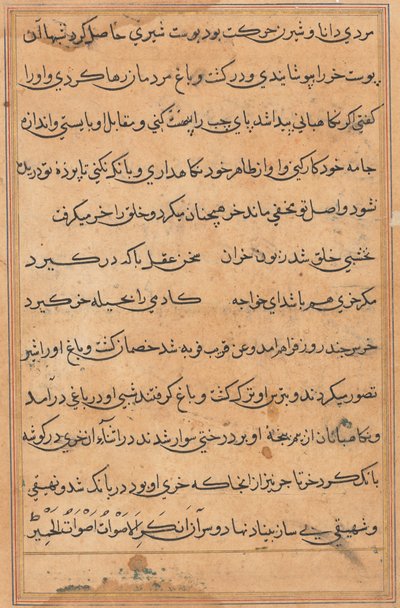 مردی دانا و شیرین حرکت بود پوست شیری حاصل کرد شبها آن
پوست خر را پوشانیدی و در کشت و باغ مردمان رها کردی و او را
کفتی اکر نکاهبانی پیدا شد پای چپ را کنی و مقابل او بایستی و اندازه
جامه خود کار کنی و آواز ظاهر خود نکاهداری و بانک نکنی تا پرده تو دریده
نشود و اصل تو مخفی ماند خر همچنان میکرد و خلق را خر میکرفت
نخشبی خلق شد زبون خران سخن عقل با که درکیرد
مکر خری هم باشد ای خواجه کادمی را بحیله خر کیرد
خر بر چند روز فراهم آمد و عن قریب فربه شد خصمان کشت و باغ او را شیر
تصور میکردند و بترس او ترک کشت و باغ کرفتند شبی او در باغی درآمد
و نکاهبانان از بیم پنجه او بر درختی سوار شدند در اثناء آن خری در کوشه
بانک کرد خر تاجر نیز از انجا که خری او بود در بانک شد و نهیقی
و شهیقی بی ساز بنیاد نهاد و سر آن اَنکَرَ الاَصْوَاتِ اَصْوَاتُ الحَمِیر